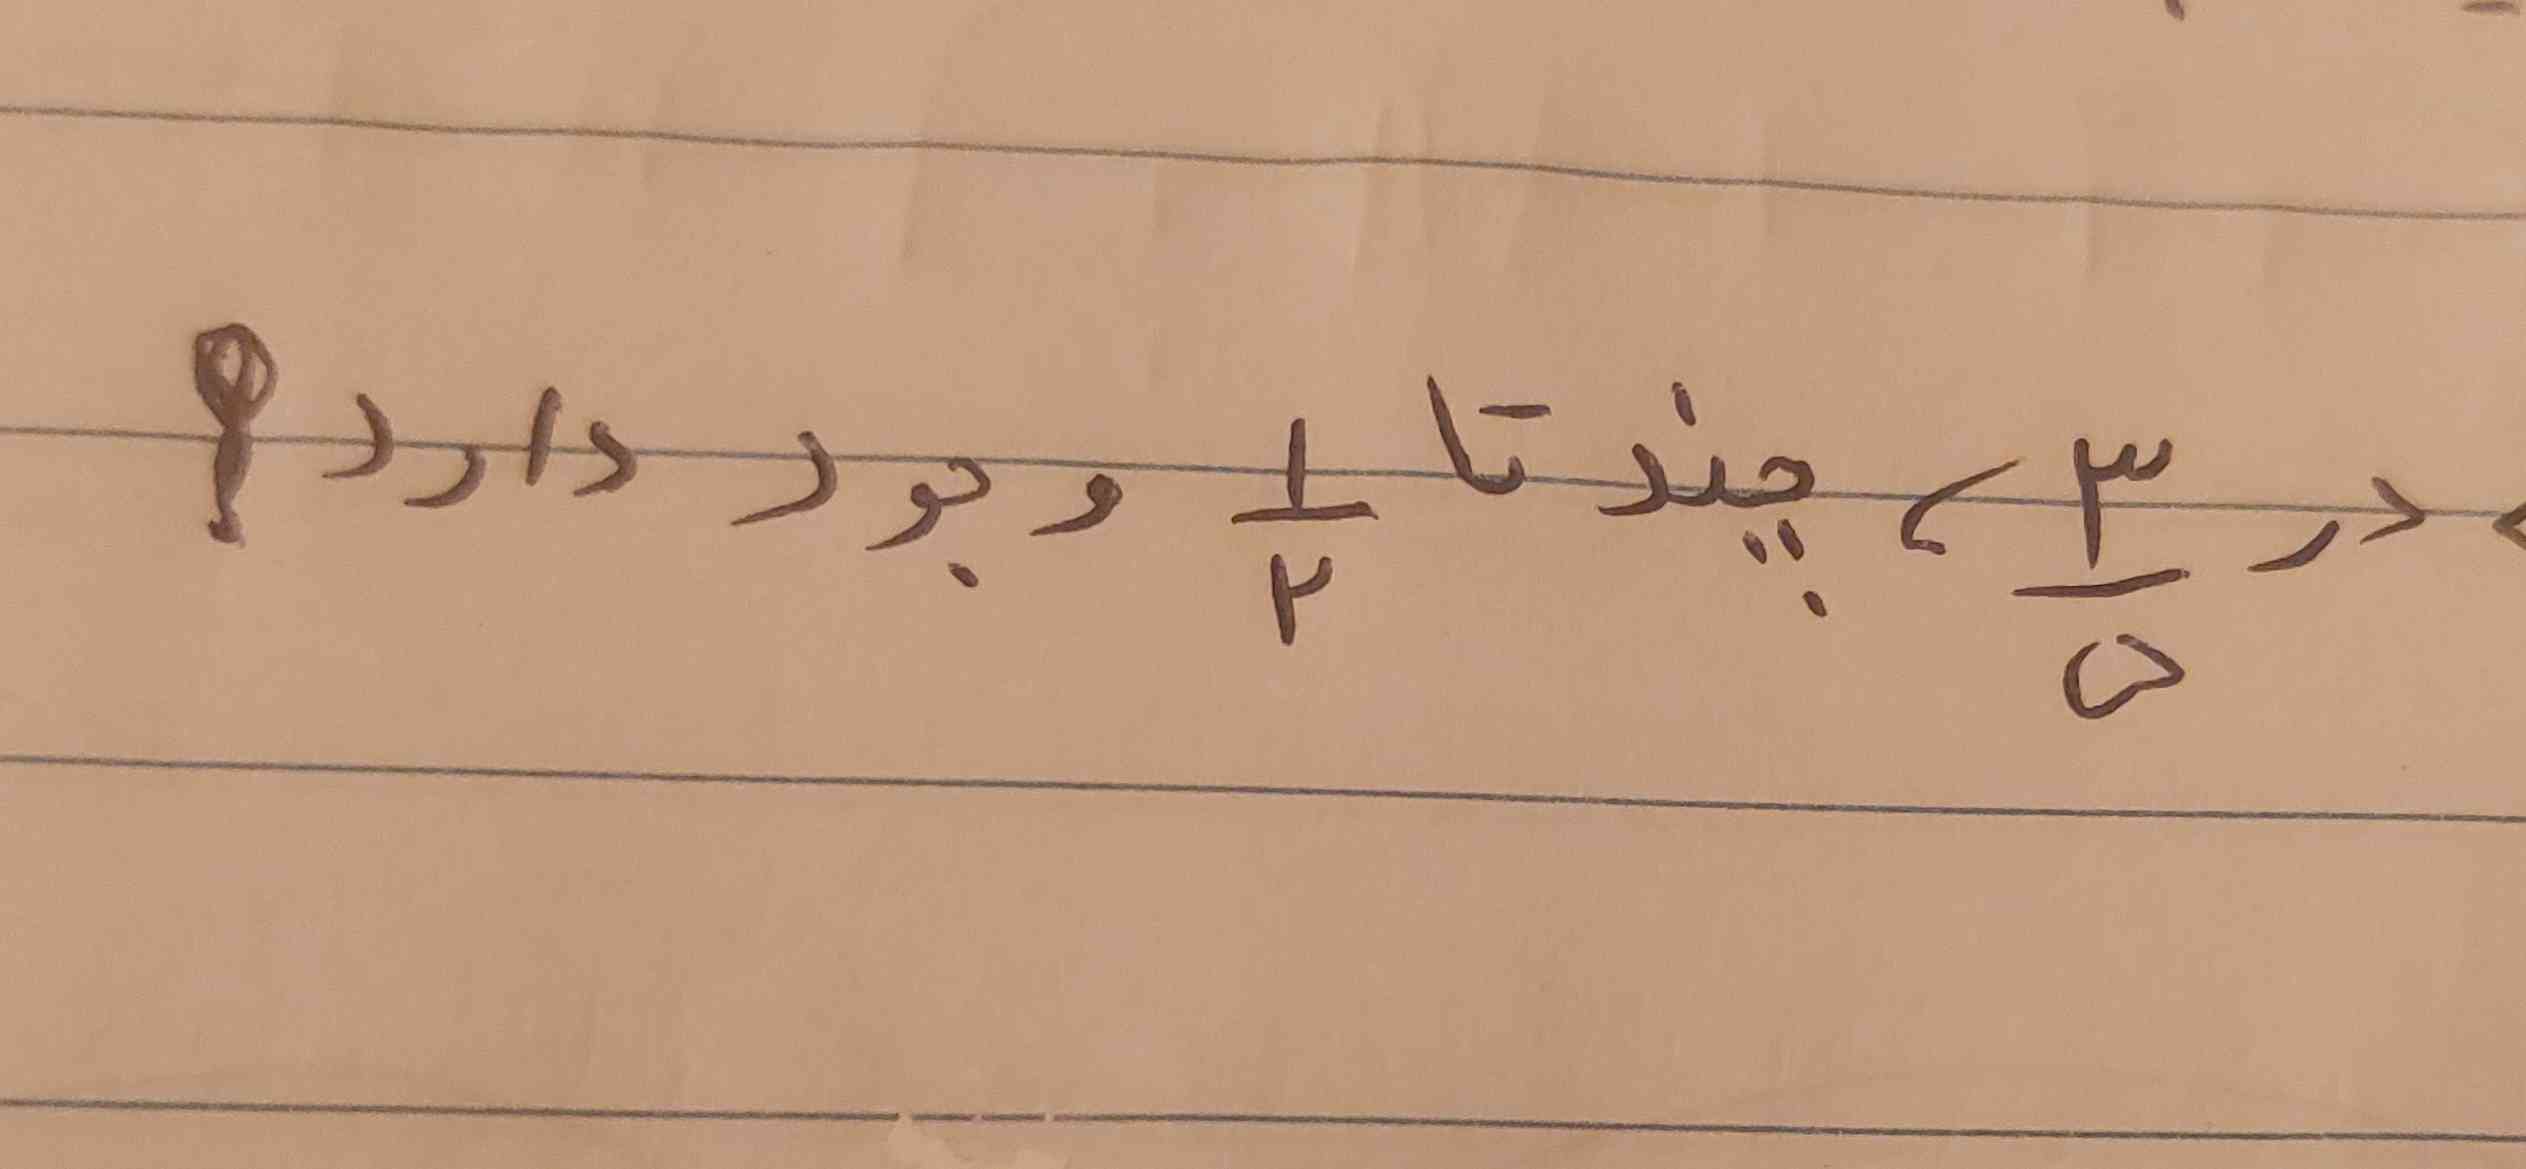 در ۳/۵ ، چند تا ۱/۲ وجود دارد ؟